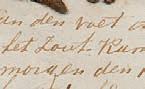 an den voet on
het Zout-Kam
morgen den